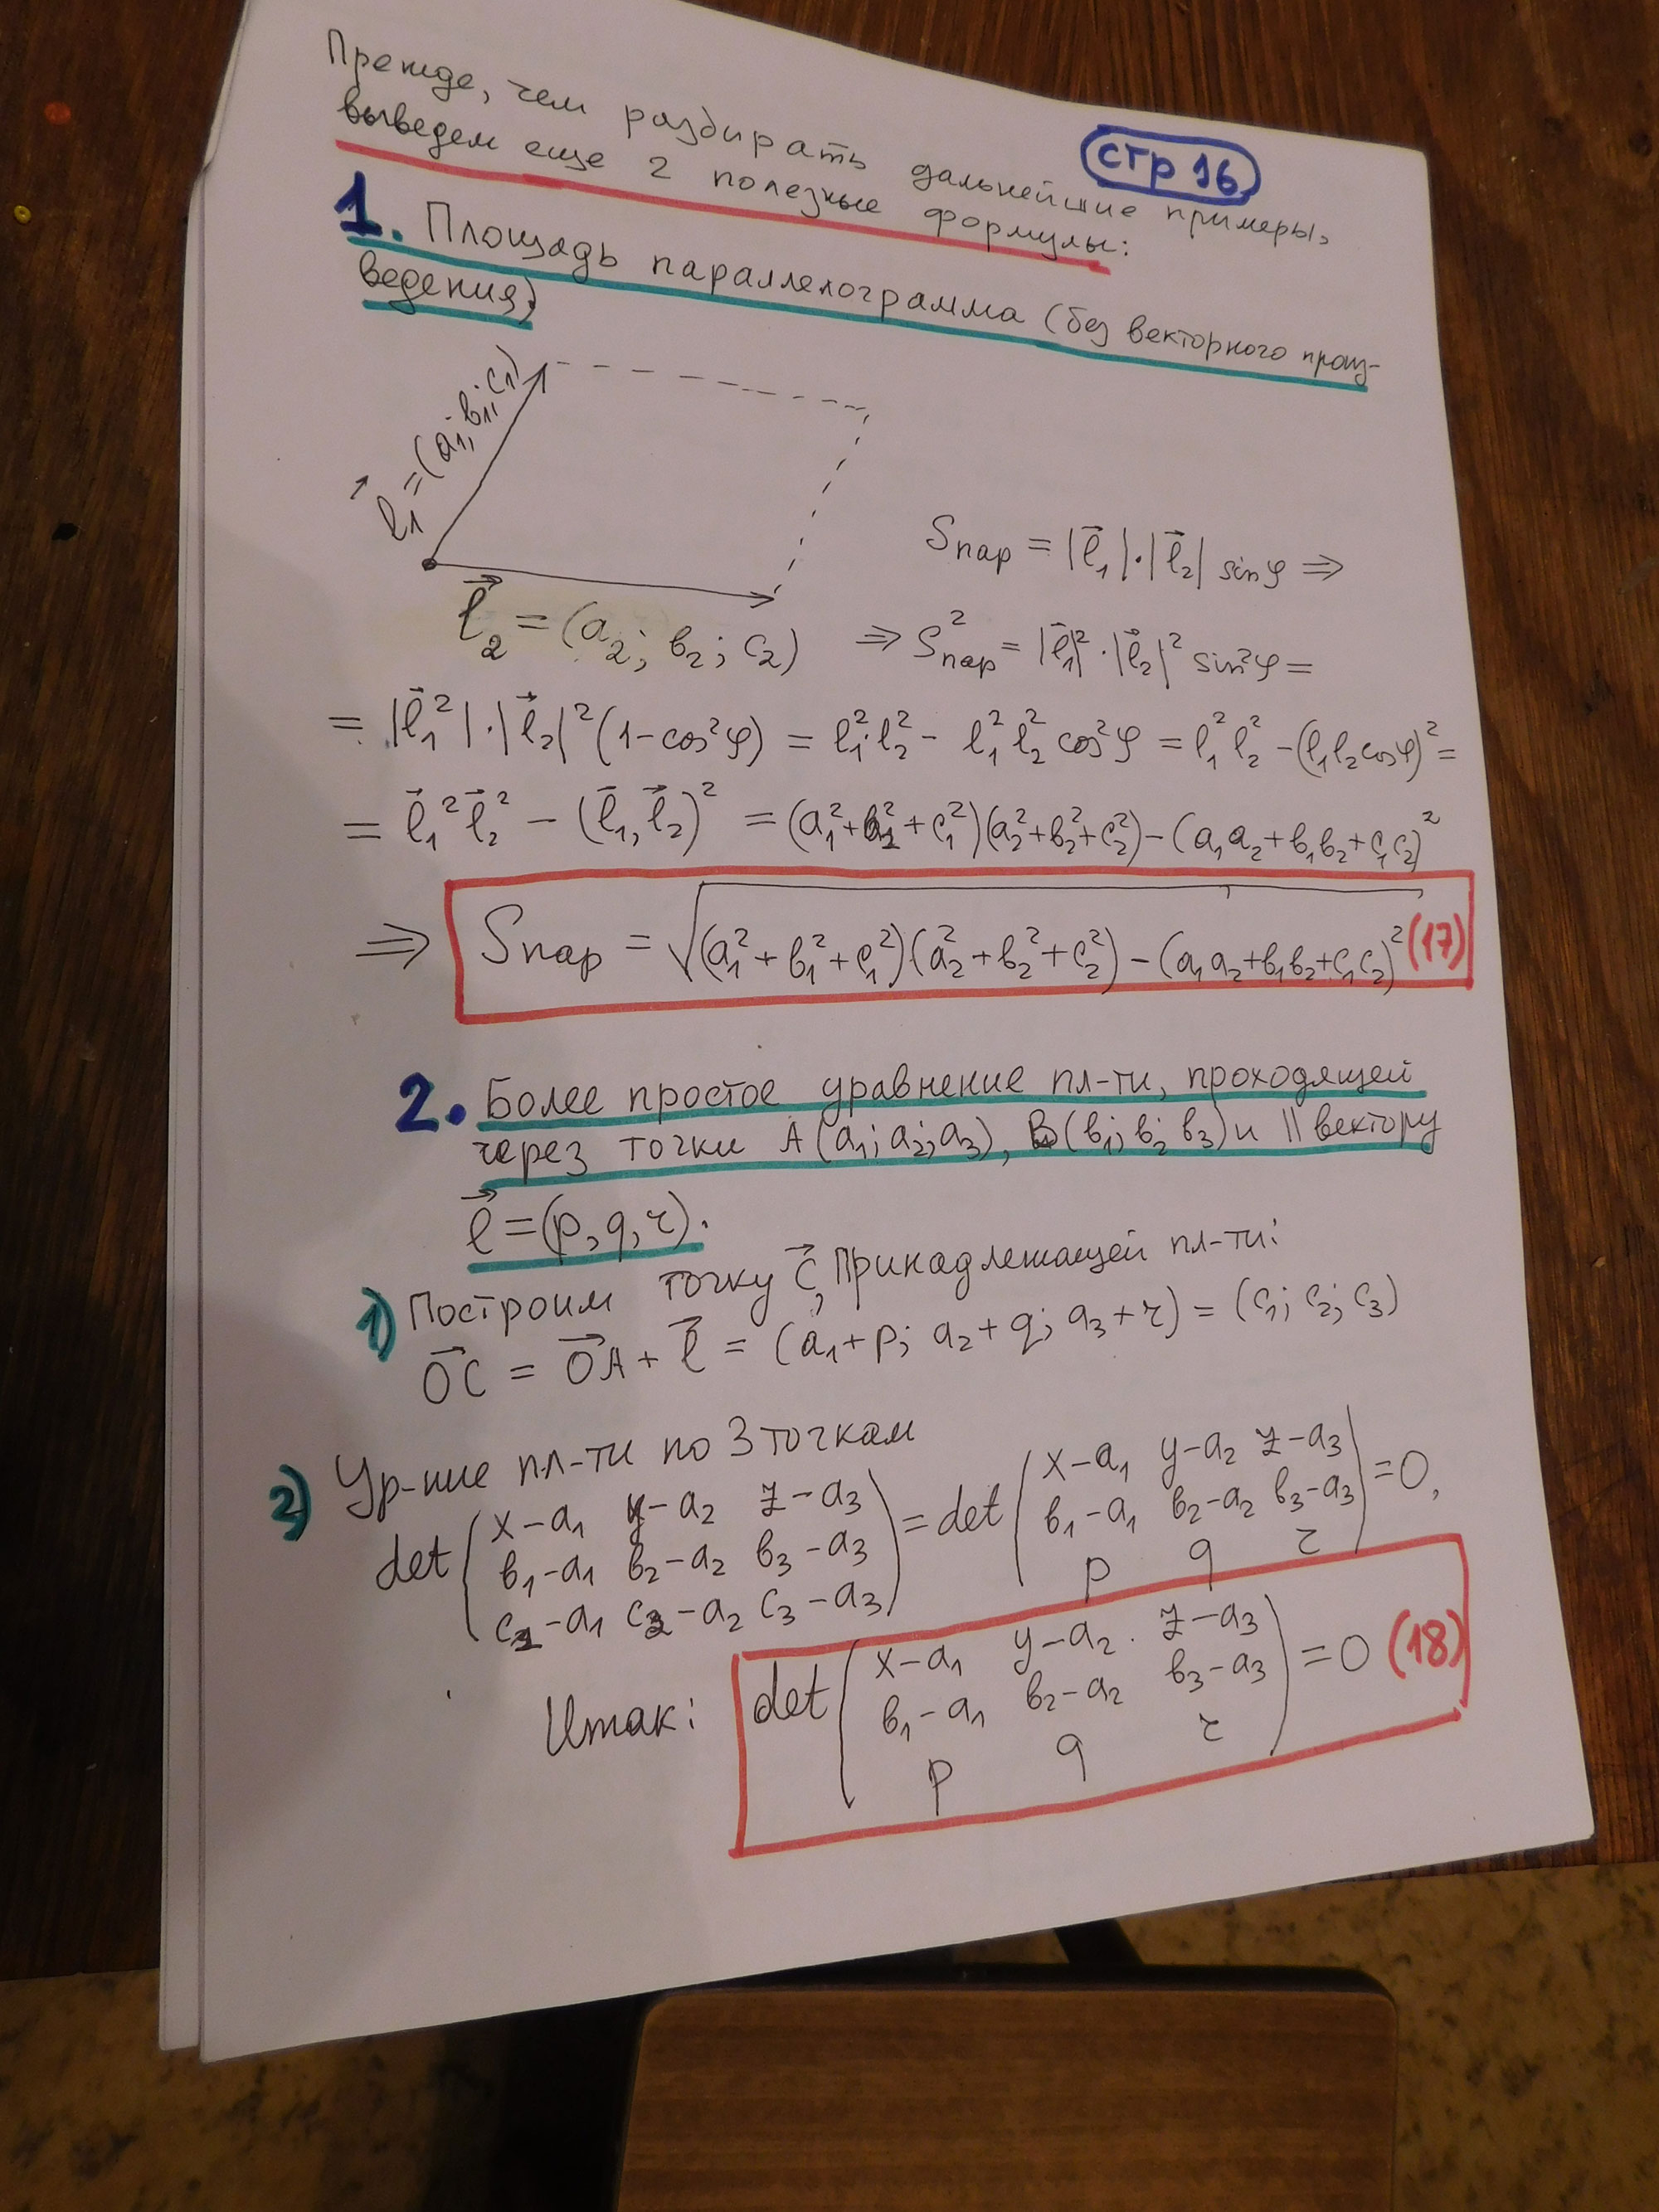 Прежде, чем разбирать дальнейшие примеры,
стр 16
выведем еще 2 полезные формулы:
1. Площадь параллелограмма (без векторного произ-
ведения)
l⃗₁ = (a₁; b₁; c₁)
l⃗₂ = (a₂; b₂; c₂)
Sпар = |l⃗₁|·|l⃗₂| sinφ ⇒
⇒ S²пар = |l⃗₁|²·|l⃗₂|² sin²φ =
= |l⃗₁²|·|l⃗₂|²(1-cos²φ) = l₁²·l₂² - l₁² l₂² cos²φ = l₁² l₂² - (l₁l₂cosφ)² =
= l⃗₁² l⃗₂² - (l⃗₁, l⃗₂)² = (a₁²+b₁²+c₁²)(a₂²+b₂²+c₂²) - (a₁a₂+b₁b₂+c₁c₂)²
⇒ Sпар = √((a₁²+b₁²+c₁²)(a₂²+b₂²+c₂²) - (a₁a₂+b₁b₂+c₁c₂)²) (17)
2. Более простое уравнение пл-ти, проходящей
через точки A(a₁; a₂; a₃), B(b₁; b₂ b₃) и || вектору
l⃗ = (p, q, r).
1) Построим точку C⃗, принадлежащей пл-ти:
O⃗C = O⃗A + l⃗ = (a₁+p; a₂+q; a₃+r) = (c₁; c₂; c₃)
2) Ур-ние пл-ти по 3 точкам
det(x-a₁ y-a₂ z-a₃
b₁-a₁ b₂-a₂ b₃-a₃
c₁-a₁ c₂-a₂ c₃-a₃) = det(x-a₁ y-a₂ z-a₃
b₁-a₁ b₂-a₂ b₃-a₃
p q r) = 0,
Итак: det(x-a₁ y-a₂ z-a₃
b₁-a₁ b₂-a₂ b₃-a₃
p q r) = 0 (18)